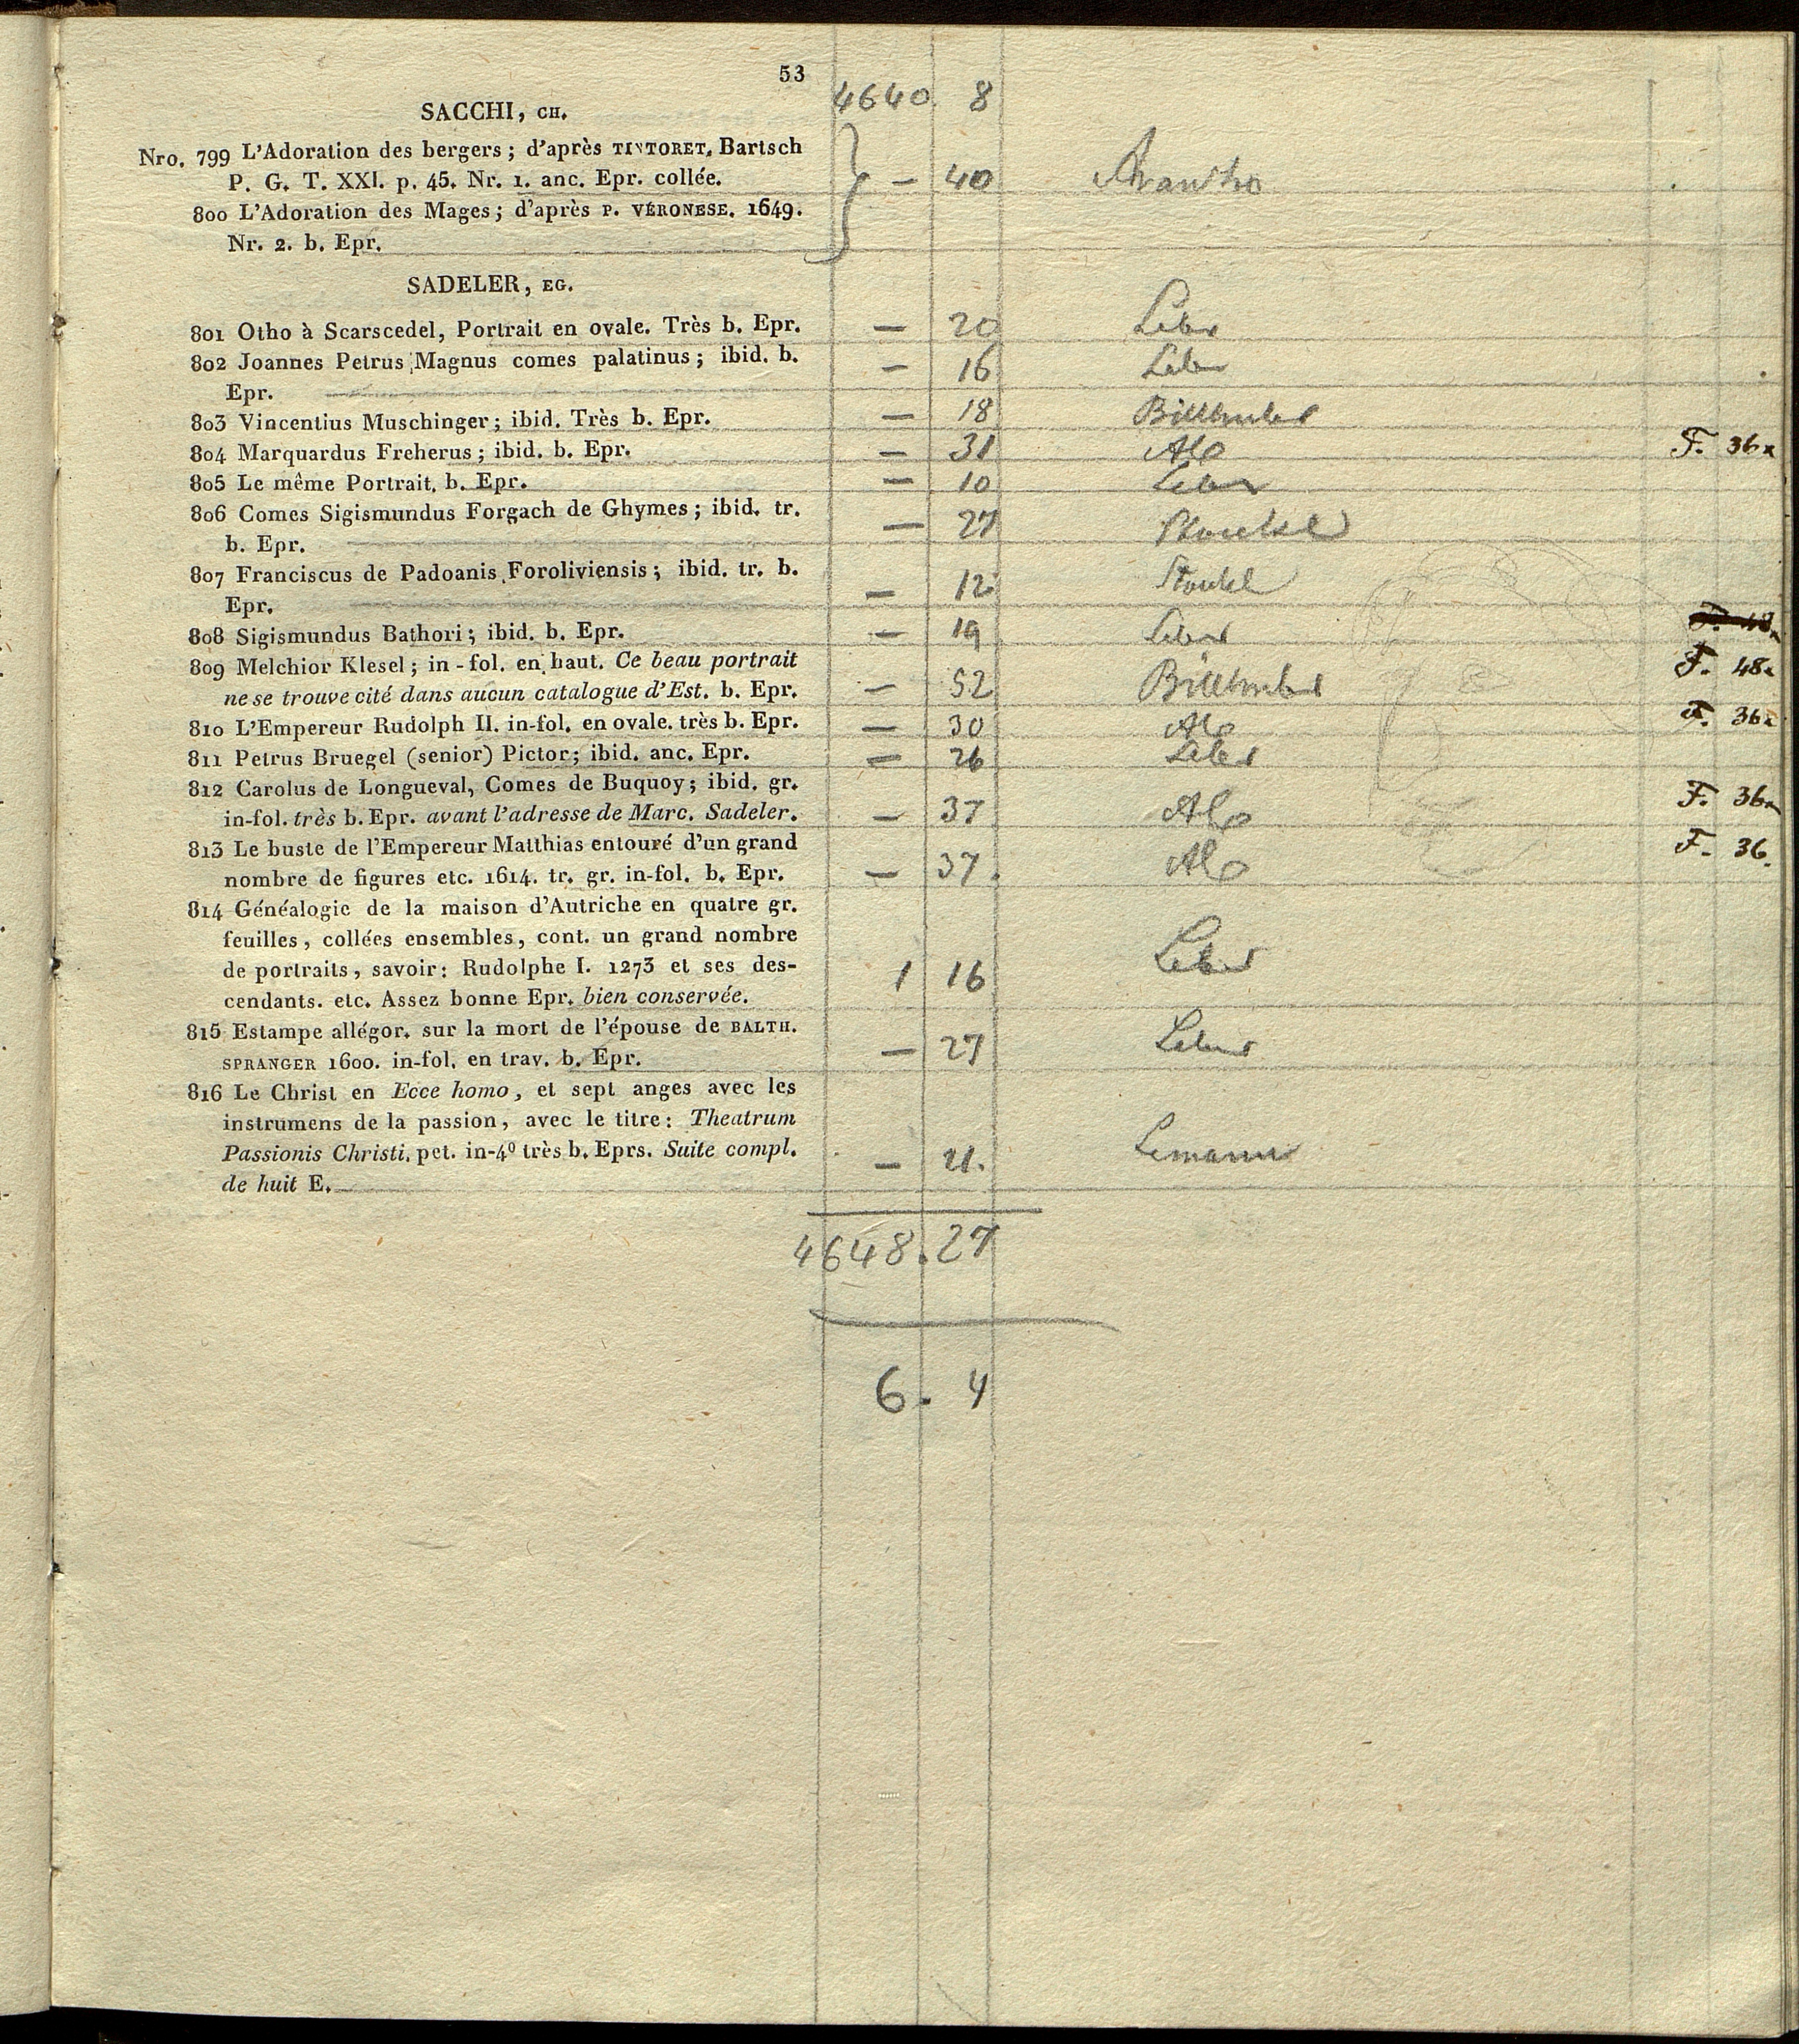 53
4640. 8
SACCHI, CH.
Nro. 799 L'Adoration des bergers; d'après TINTORET. Bartsch
P. G. T. XXI. p. 45. Nr. 1. anc. Epr. collée. — 40
800 L'Adoration des Mages; d'après P. VÉRONESE. 1649.
Nr. 2. b. Epr.
SADELER, EG.
801 Otho à Scarscedel, Portrait en ovale. Très b. Epr. — 20
802 Joannes Petrus Magnus comes palatinus; ibid. b. — 16
Epr.
803 Vincentius Muschinger; ibid. Très b. Epr. — 18
804 Marquardus Freherus; ibid. b. Epr. — 31 F. 36x
805 Le même Portrait. b. Epr. — 10
806 Comes Sigismundus Forgach de Ghymes; ibid. tr. — 27
b. Epr.
807 Franciscus de Padoanis Foroliviensis; ibid. tr. b. — 12
Epr.
808 Sigismundus Bathori; ibid. b. Epr. — 19
809 Melchior Klesel; in-fol. en haut. Ce beau portrait F. 48x
ne se trouve cité dans aucun catalogue d'Est. b. Epr. — 52
810 L'Empereur Rudolph II. in-fol. en ovale. très b. Epr. — 30 F. 36x
811 Petrus Bruegel (senior) Pictor; ibid. anc. Epr. — 26
812 Carolus de Longueval, Comes de Buquoy; ibid. gr. F. 36x
in-fol. très b. Epr. avant l'adresse de Marc. Sadeler. — 37
813 Le buste de l'Empereur Matthias entouré d'un grand F. 36.
nombre de figures etc. 1614. tr. gr. in-fol. b. Epr. — 37.
814 Généalogie de la maison d'Autriche en quatre gr.
feuilles, collées ensembles, cont. un grand nombre
de portraits, savoir: Rudolphe I. 1273 et ses des- 1 16
cendants. etc. Assez bonne Epr. bien conservée.
815 Estampe allégor. sur la mort de l'épouse de BALTH.
SPRANGER 1600. in-fol. en trav. b. Epr. — 27
816 Le Christ en Ecce homo, et sept anges avec les
instrumens de la passion, avec le titre: Theatrum
Passionis Christi. pet. in-4º très b. Eprs. Suite compl. — 21.
de huit E.
4648.27
6. 4